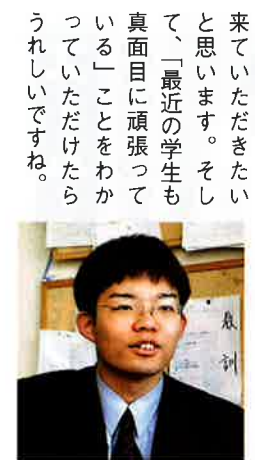 来ていただきたい
と思います。そし
て、「最近の学生も
真面目に頑張って
いる」ことをわか
っていただけたら
うれしいですね。
訓